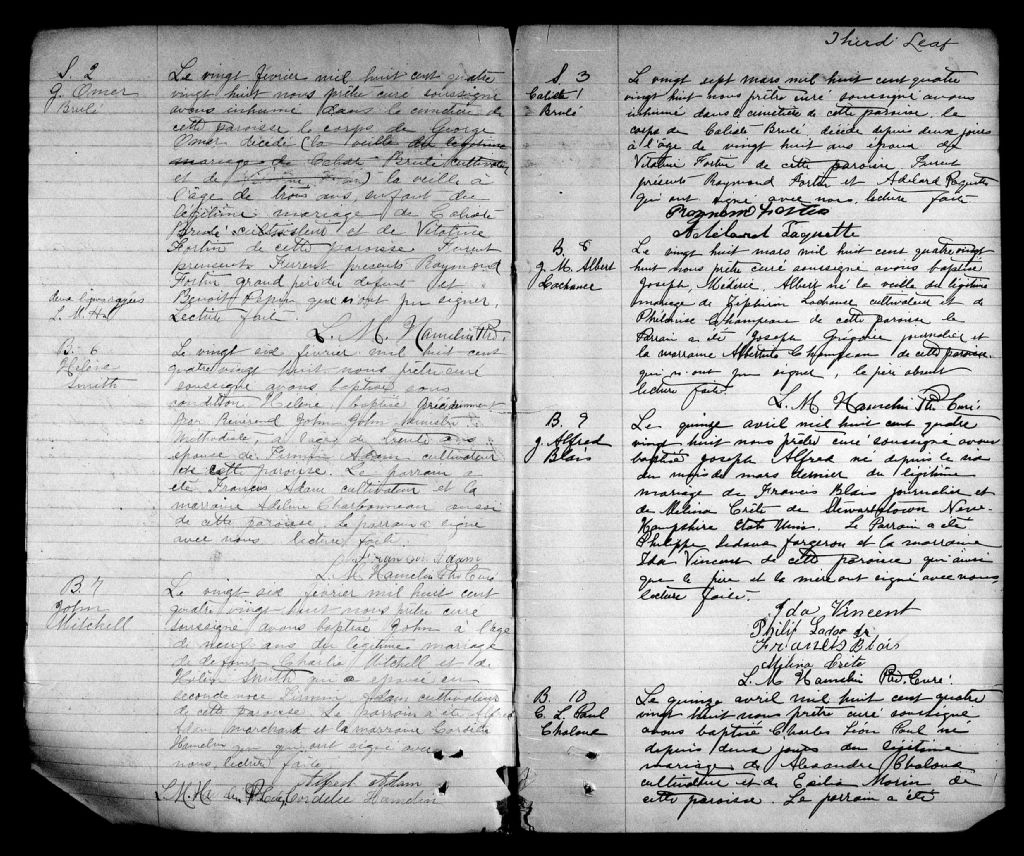 S. 2
G. Omer
Brulé
Le vingt février mil huit cent quatre
vingt huit nous prêtre curé soussigné
avons inhumé dans le cimetière de
cette paroisse le corps de George
Omer décédé (la veille du légitime
mariage de Calixte Brulé cultivateur
et de) la veille à
l'âge de trois ans, enfant du
légitime mariage de Calixte
Brulé cultivateur et de Vitaline
Fortin de cette paroisse Furent
presents Furrent presents Raymond
Fortin grand père du defunt et
Benoit Pepin qui n'ont pu signer,
Lecture faite.
L. M. Hamelin Ptre.
L. M. H.
B. 6
Hélène
Smith
Le vingt six février mil huit cent
quatre vingt huit nous prêtre curé
soussigné avons baptisé sous
condition Hélène, baptisé précédemment
par Reverend John John Ministre
Méthodiste, à l'âge de trente ans
épouse de Firmin Adam cultivateur
de cette paroisse. Le parrain a
été Francois Adam cultivateur et la
marraine Adeline Charbonneau aussi
de cette paroisse. Le parrain a signé
avec nous lecture faite.
Francois Adam
L. M. Hamelin Ptre Curé
B. 7
John
Mitchell
Le vingt six février mil huit cent
quatre vingt huit nous prêtre curé
soussigné avons baptisé John à l'âge
de neuf ans du légitime mariage
de defunt Charlie Mitchell et de
Smith qui a épousé en
seconde noce Firmin Adam cultivateur
de cette paroisse. Le parrain a été
Adam marchand et la marraine Cordelie
Hamelin qui ont signé avec
nous, lecture faite
Adam
L. M. Cordelie Hamelin
Third Leaf
S 3
Calixte
Brulé
Le vingt sept mars mil huit cent quatre
vingt huit nous prêtre curé soussigné avons
inhumé dans le cimetière de cette paroisse le
corps de Calixte Brulé décédé depuis deux jours
à l'âge de vingt huit ans époux de
Vitaline Fortin de cette paroisse Furent
présents Raymond Fortin et Adelard Paquette
qui ont signé avec nous, lecture faite
Raymond Fortin
Adelard Paquette
B. 8
J. M. Albert
Lachance
Le vingt huit mars mil huit cent quatre vingt
huit nous prêtre curé soussigné avons baptisé
Joseph, Médéric, Albert né la veille du légitime
mariage de Zéphirin Lachance cultivateur et de
Philomise Champeau de cette paroisse le
Parrain a été Joseph Grégoire journalier et
la marraine Albertile Champeau de cette paroisse
qui n'ont pu signer, le père absent
lecture faite.
L. M Hamelin Ptre Curé
B. 9
J. Alfred
Blais
Le quinze avril mil huit cent quatre
vingt huit nous prêtre curé soussigné avons
baptisé Joseph Alfred né depuis le
du mois de mars dernier du légitime
mariage de Francis Blais journalier et
de Melina Crête de Stewartstown New
Hampshire Etats Unis. Le Parrain a été
Philippe Ledoux forgeron et la marraine
Ida Vincent de cette paroisse qui ainsi
que le père et la mère ont signé avec nous
lecture faite.
Ida Vincent
Philip
Francis Blais
Melina Crete
L. M Hamelin Ptre. Curé
B. 10
C. L. Paul
Chaloux
Le quinze avril mil huit cent quatre
vingt huit nous prêtre curé soussigné
avons baptisé Charles Léon Paul né
depuis deux jours du légitime
mariage de Alexandre Chaloux
cultivateur et de Exilia Morin de
cette paroisse. Le parrain a été